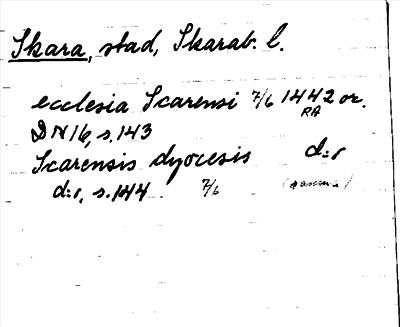 Skara, stad, Skarab. l.
ecclesia Scarensi 7/6 1442 or.
RA
DN 16, s. 143
Scarensis dyocesis d:o
d:o, s. 144. 7/6